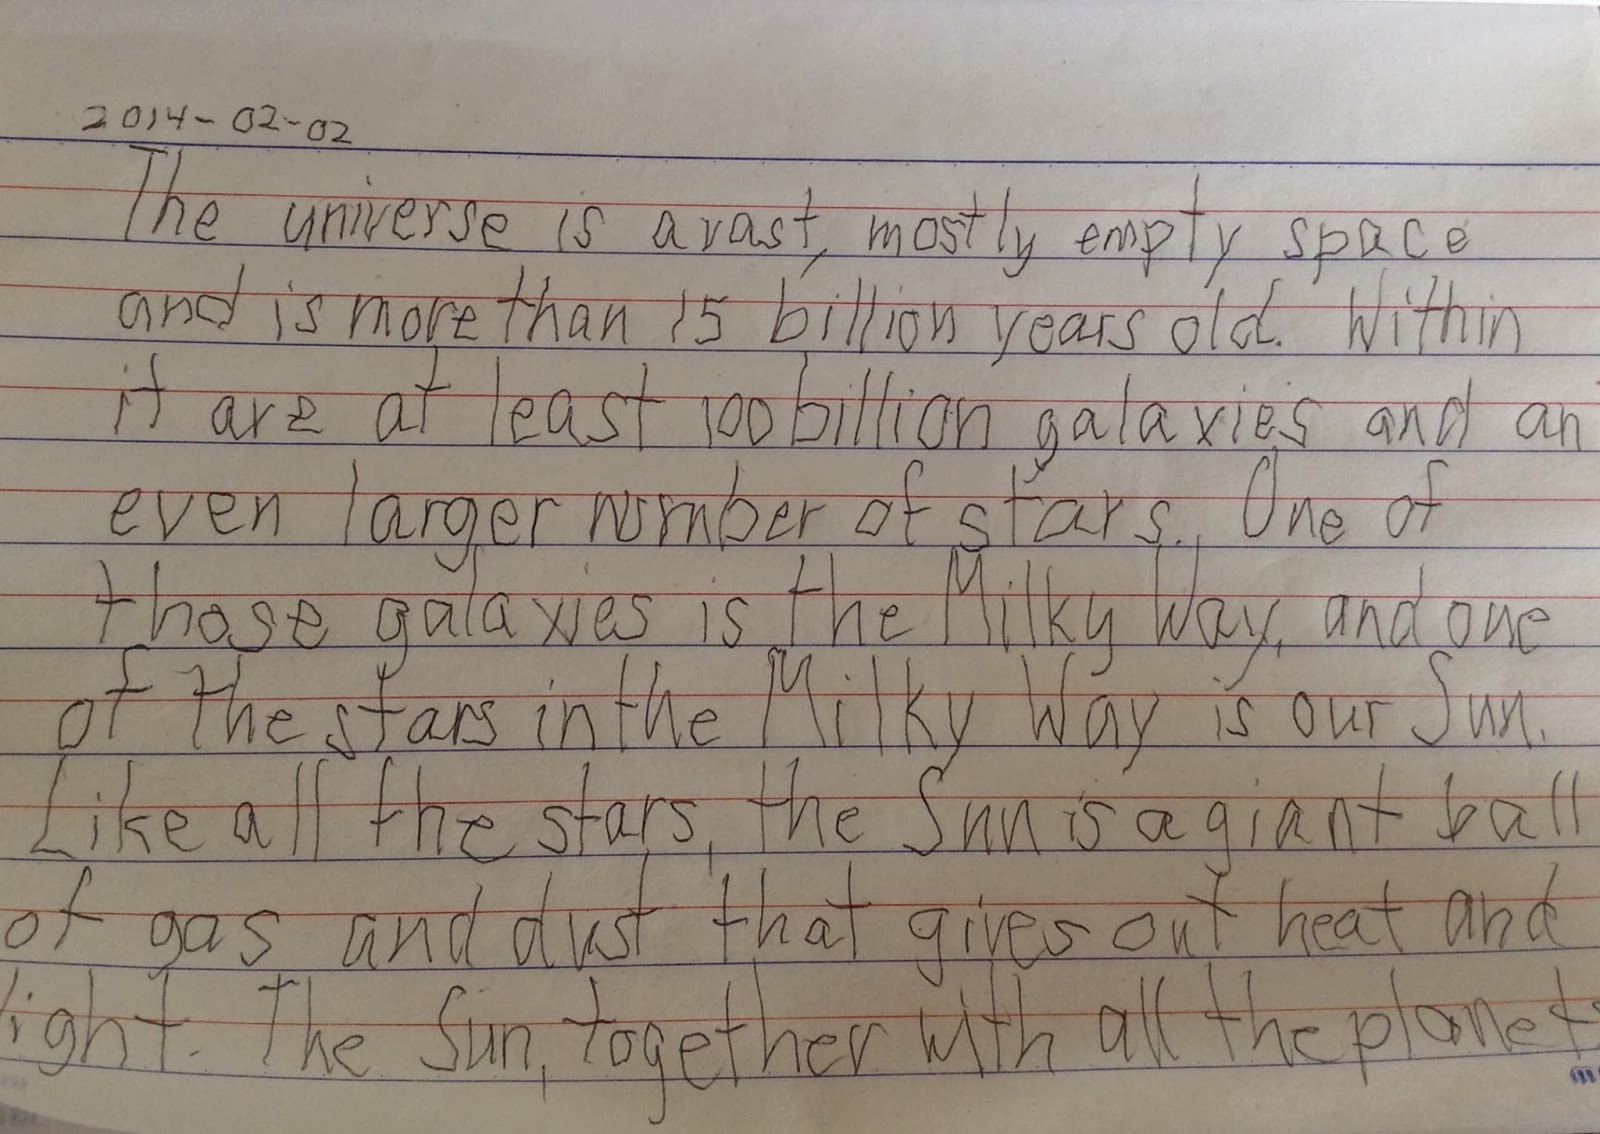 2014-02-02
The universe is a vast, mostly empty space
and is more than 15 billion years old. Within
it are at least 100 billion galaxies and an
even larger number of stars. One of
those galaxies is the Milky Way, and one
of the stars in the Milky Way is our Sun.
Like all the stars, the Sun is a giant ball
of gas and dust that gives out heat and
light. The Sun, together with all the planets